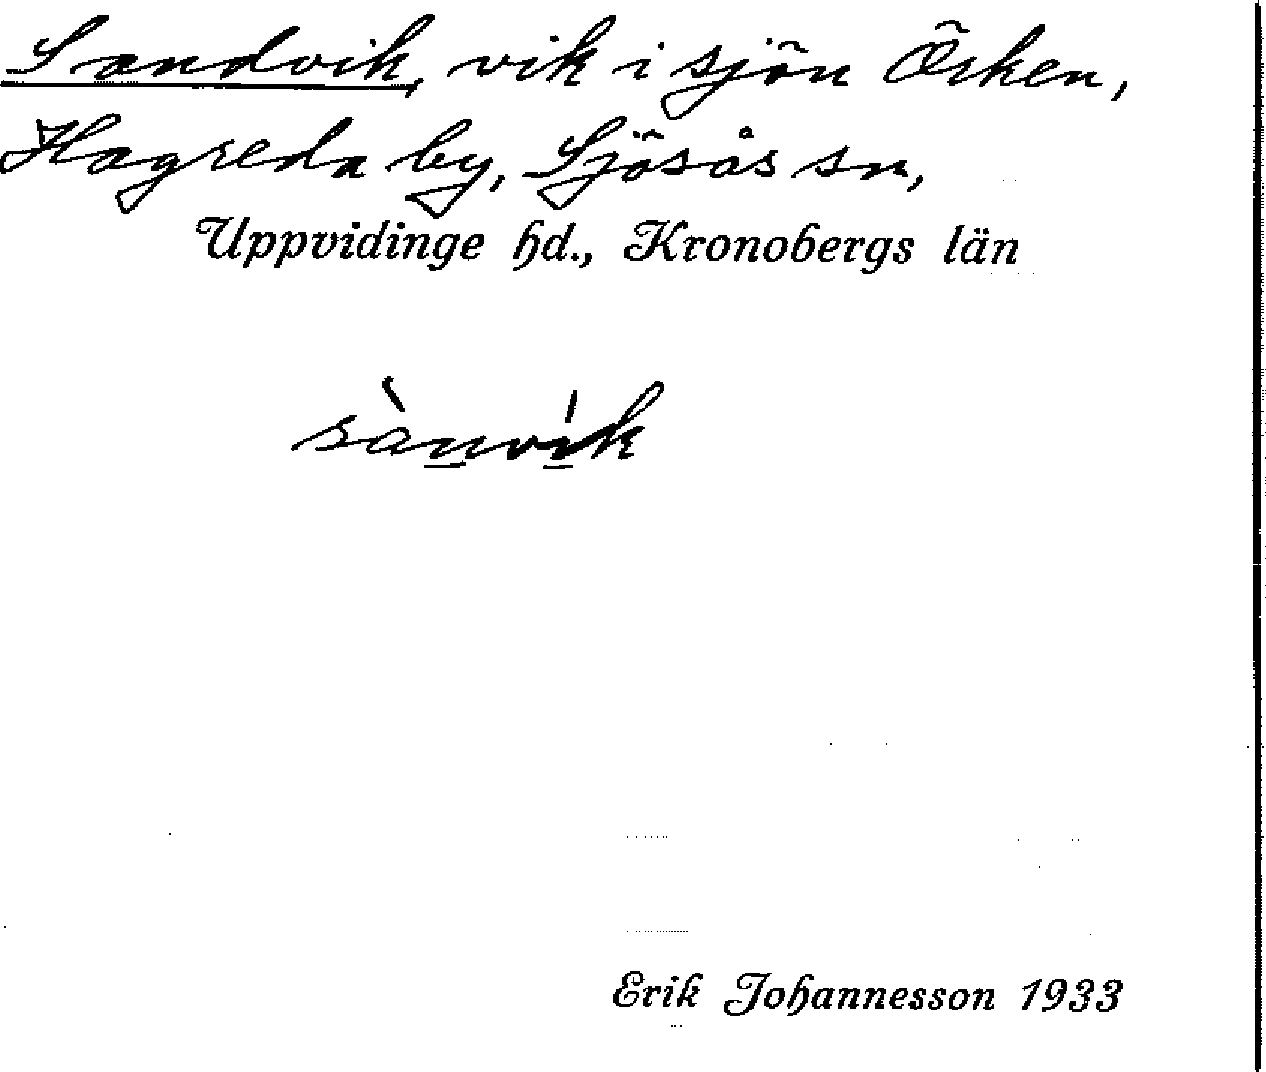 Sandvik, vik i sjön Örken,
Hagreda by, Sjösås sn,
Uppvidinge hd., Kronobergs län
sànvík
Erik Johannesson 1933